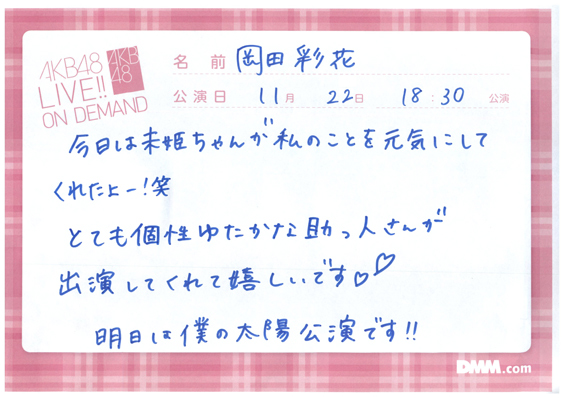 AKB48
LIVE!!
ON DEMAND
AKB
48
名前 岡田彩花
公演日 11月 22日 18:30 公演
今日は未姫ちゃんが私のことを元気にして
くれたよー!笑
とても個性ゆたかな助っ人さんが
出演してくれて嬉しいです♡♡
明日は僕の太陽公演です!!
DMM.com